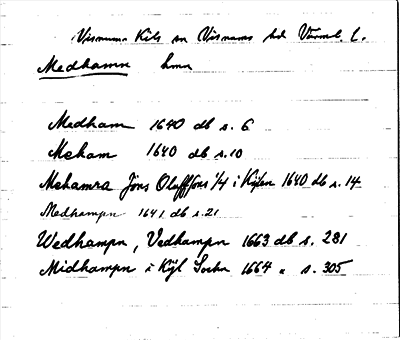 Visnums Kils sn Visnums hd Värml. l.
Medhamn hmn
Medham 1640 db s. 6
Meham 1640 db s. 10
Mehamra Jöns Oluffsons 1/4 i Kijlen 1640 db s. 14
Medhampn 1641 db s. 21
Wedhampn, Vedhampn 1663 db s. 281
Midhampn i Kijl Sochn 1664 " s. 305